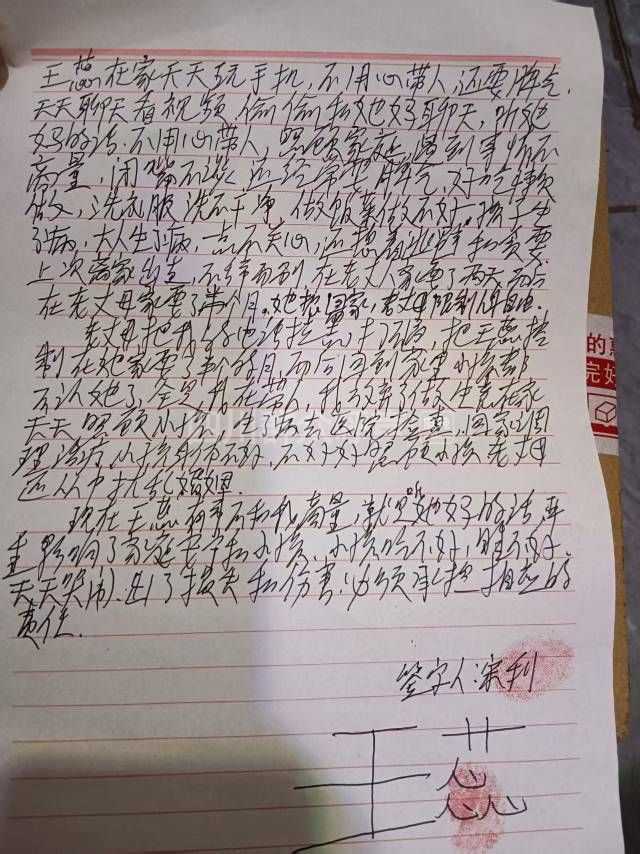 王蕊在家天天玩手机,不用心带人,还耍脾气.
天天聊天看视频.偷偷和她妈聊天,听她
妈的话.不用心带人,照顾家庭,遇到事情不
商量,闭嘴不谈,还经常耍脾气,好吃懒
做,洗衣服洗不干净,做饭菜做不好.孩子生
了病,大人生了病,一点不关心,还想着
上次离家出走,在老丈人家耍了两天
在老丈母家耍了半个月.她想回家,老丈母限制人身自由.
老丈母把我的电话拉黑,打不通,把王蕊控
制在她家耍了半个多月.而后回到家里小孩都
不认她了,全是我在带人,我放弃了做生意在家
天天照顾小孩,生了病去医院检查,回家调
理治疗,小孩身体不好,不好好照顾小孩老娘
还从中扰乱
现在王蕊有事不和我商量,就是听她妈的话,严
重影响了家庭安宁和小孩.小孩吃不好,睡不好.
天天哭闹.出了损失和伤害必须承担相应的
责任.
签字人:宋利
王蕊
的
完好